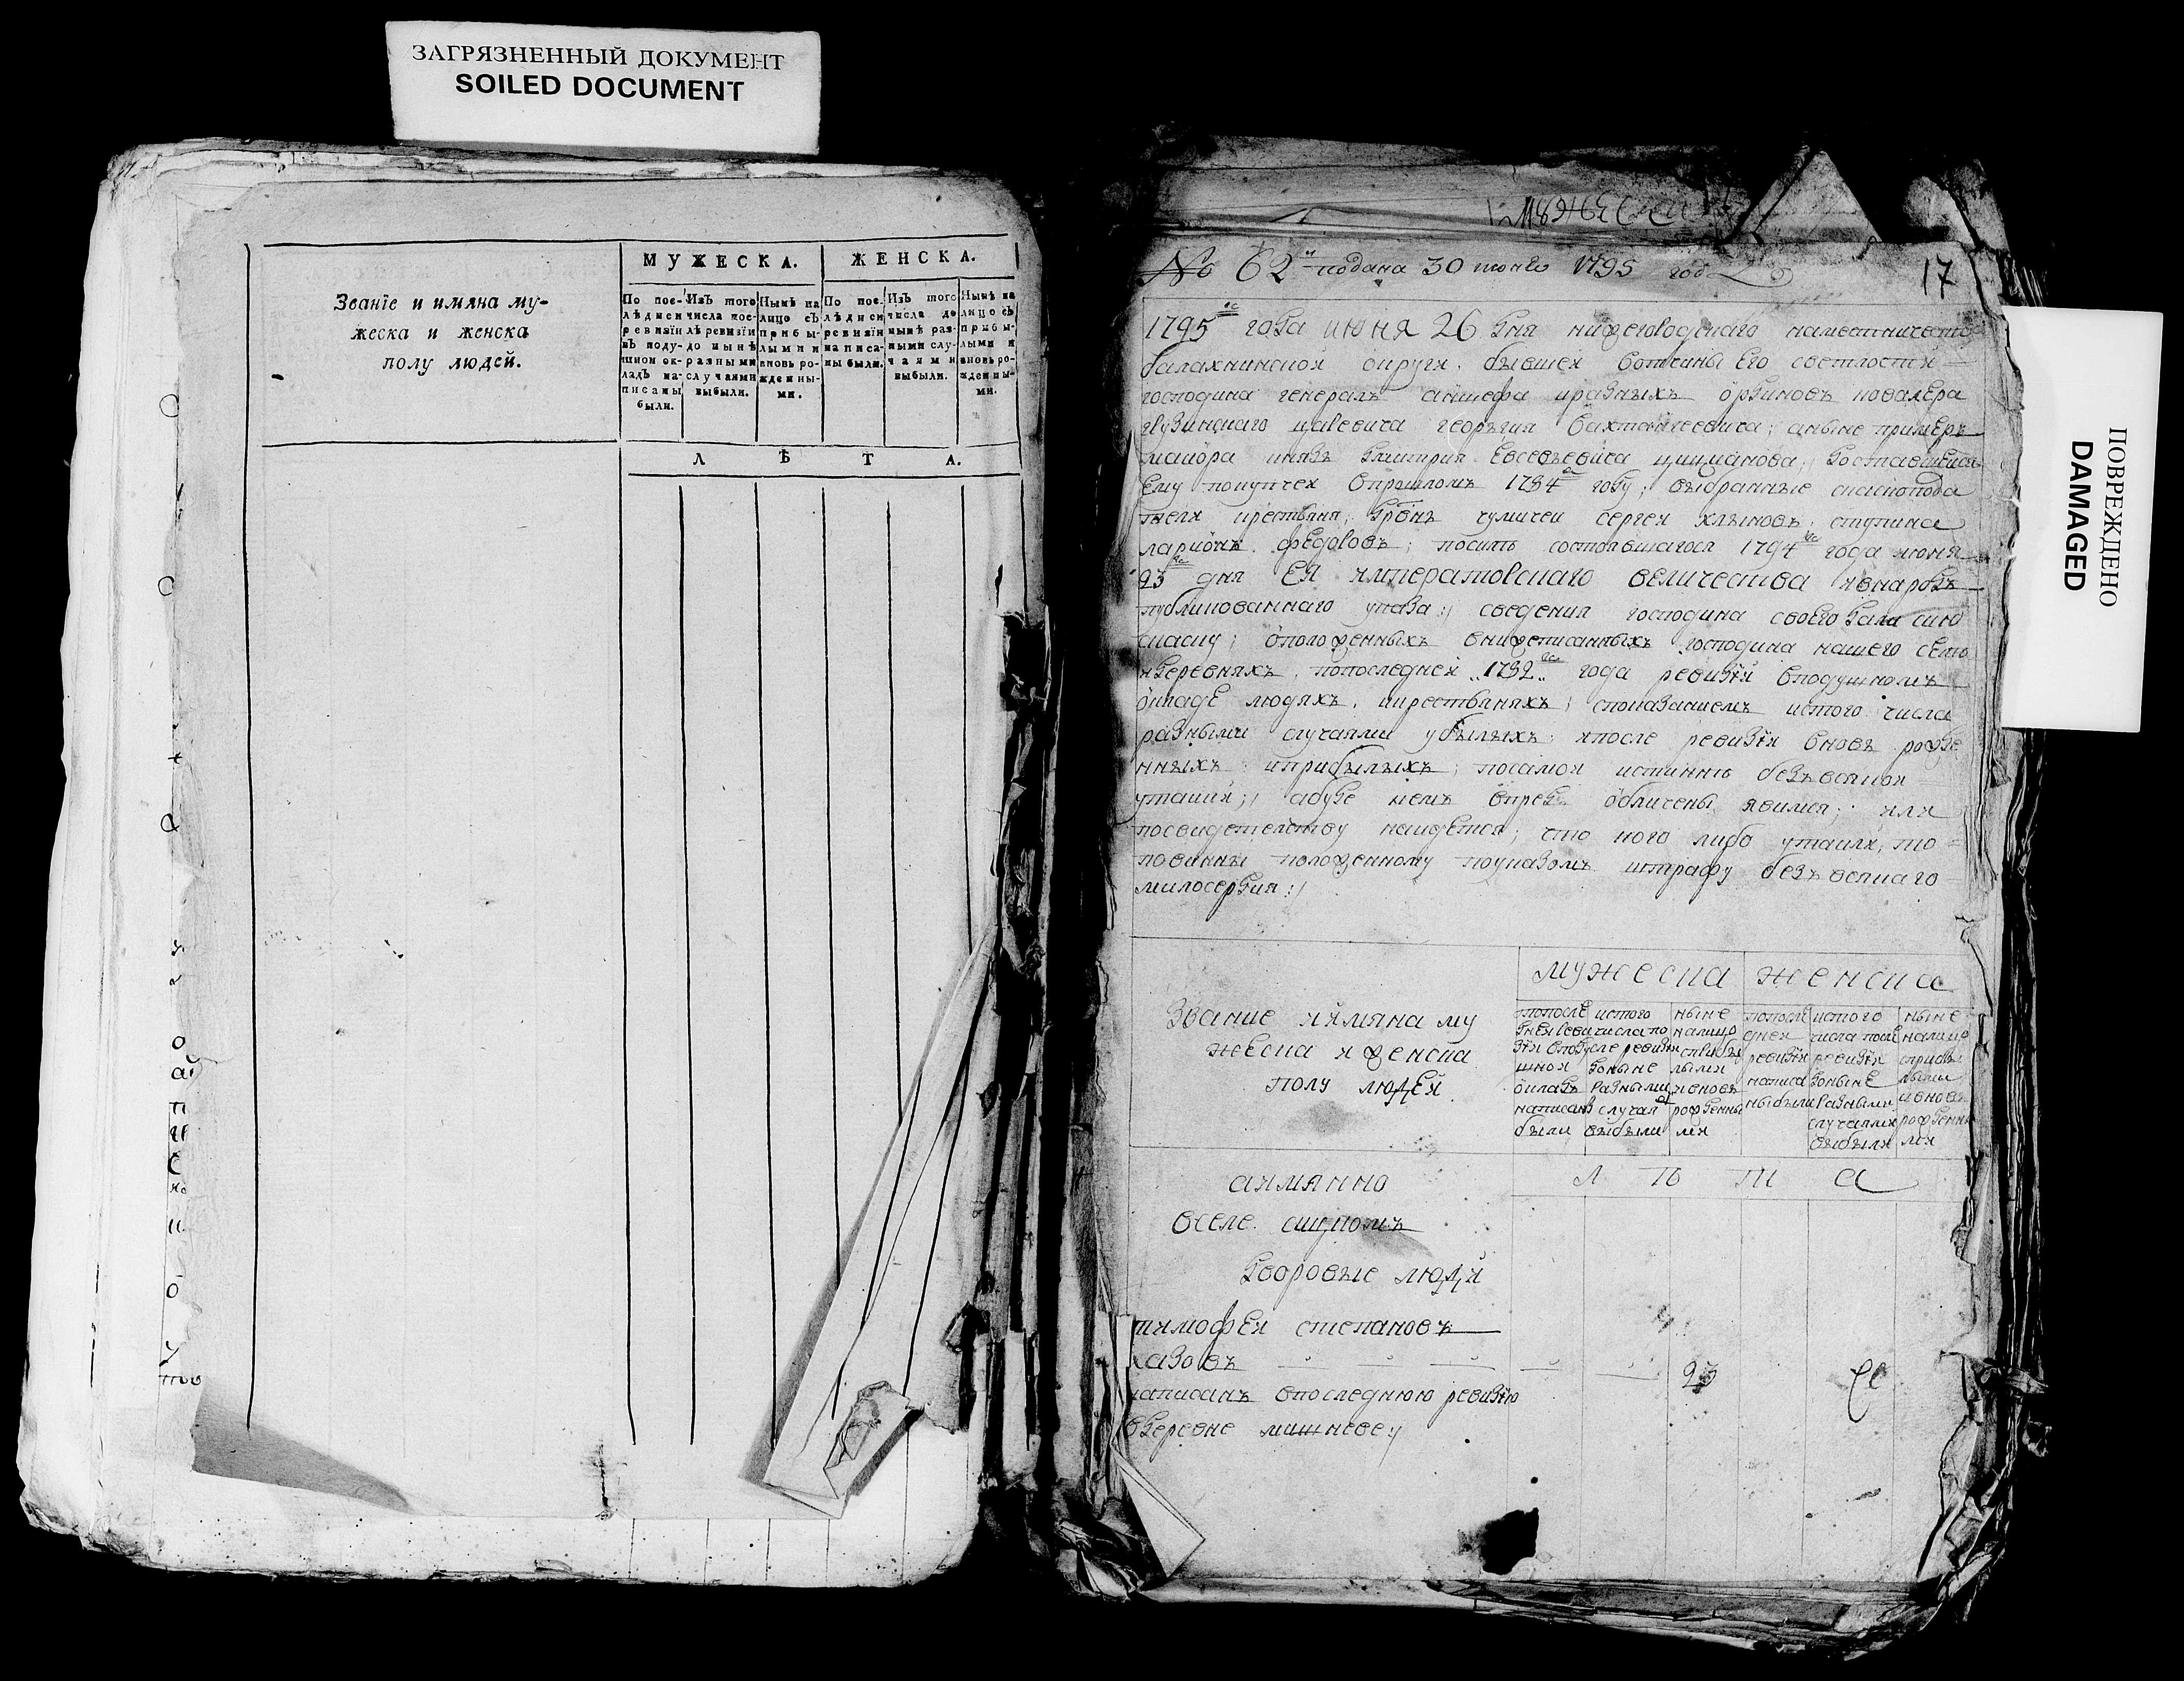 ЗАГРЯЗНЕННЫЙ ДОКУМЕНТ
SOILED DOCUMENT
Званїе и имяна му-
жеска и женска
полу людей.
МУЖЕСКА.
ЖЕНСКА.
По пос-
лѣднеи
ревизїи
въ поду-
шном ок-
ладѣ на-
писаны
были.
Изъ того
числа пос-
лѣ ревизїи
до нынѣ
разными
случаями
выбыли.
Нынѣ на
лицо съ
прибы-
лыми и
вновь ро-
жденны-
ми.
По пос-
лѣднеи
ревизїи
написа-
ны были.
Изъ того
числа до
нынѣ раз-
ными слу-
чаями
выбыли.
Нынѣ на
лицо съ
прибы-
лыми и
вновь ро-
жденны-
ми.
Л Ѣ Т А.
№ 62й подана 30 июня 1795 году
17
1795го года июня 26 дня нижегородскаго наместничества
балахнинской округи бывшей вотчины Его светлости
господина генералъ аншефа иразныхъ орденовъ кавалера
грузинскаго царевича георъгия вахтангеевича; аныне примеръ
маиора князь дмитрия Евсевьевича цицианова, доставшейся
Ему покупкеи впрошломъ 1794м году; выбранные
крестьяня, сергеи хлыновъ, ступина
ларионъ федоровъ; посиле состоявшагося 1794го года июня
23го дня Ея императорскаго величества инародъ
публикованнаго указа; сведения господина своего дали сию
скаску; оположенныхъ внижеписанныхъ господина нашего селе
идеревняхъ, попоследней 1782го года ревизїи вподушномъ
окладе людяхъ, икрестьяняхъ; споказаниемъ истого числа
разными случаями убылыхъ; ипосле ревизїи вновь рожде
нныхъ иприбылыхъ; посамои истинне безъ всякои
утаики; абуде кемъ впредь обличены явимся; или
посвидетелству наидется; что кого либо утаили, то
повинны положенному поуказомъ штрафу безъ всякаго
милосердия
Звание иимяна му
жеска иженска
полу людей
мужеска
женска
попосле
дней реви
зїи вподу
шнои
окладъ
написаны
были
истого
числа по
сле ревизїи
доныне
разными
случаи
выбыли
ныне
налицо
сприбы
лыми
ивновь
рожденны
ми
попосле
дней
ревизїи
написа
ны были
истого
числа после
ревизїи
доныне
разными
случаями
выбыли
ныне
налицо
сприбы
лыми
ивновь
рожденны
ми
Л Ѣ Т А
аимянно
вселе сицкомъ
дворовые люди
тимофеи степановъ
23
написанъ впоследнюю ревизїю
вдеревне машневе
ПОВРЕЖДЕНО
DAMAGED